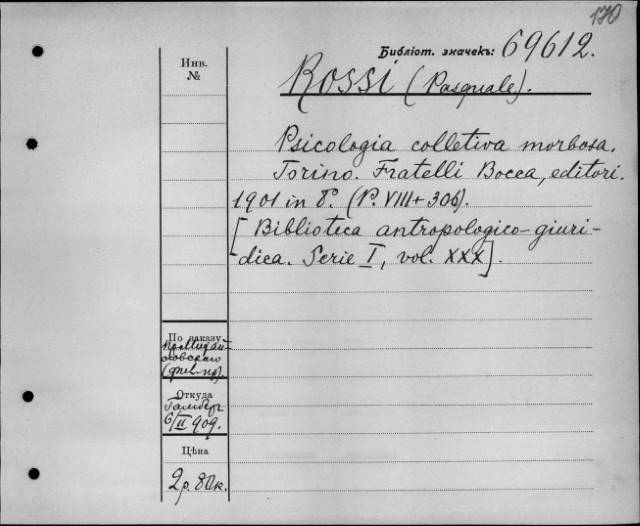 170
Библіот. значекъ: 69612.
Инв.
№
Rossi (Pasquale).
Psicologia colletiva morbosa.
Torino. Fratelli Bocca, editori.
1901 in 8°. (P. VIII + 306).
[Biblioteca antropologico-giuri-
dica. Serie I, vol. XXX].
По заказу
Откуда
6/II 909.
Цѣна
2 р. 80 к.